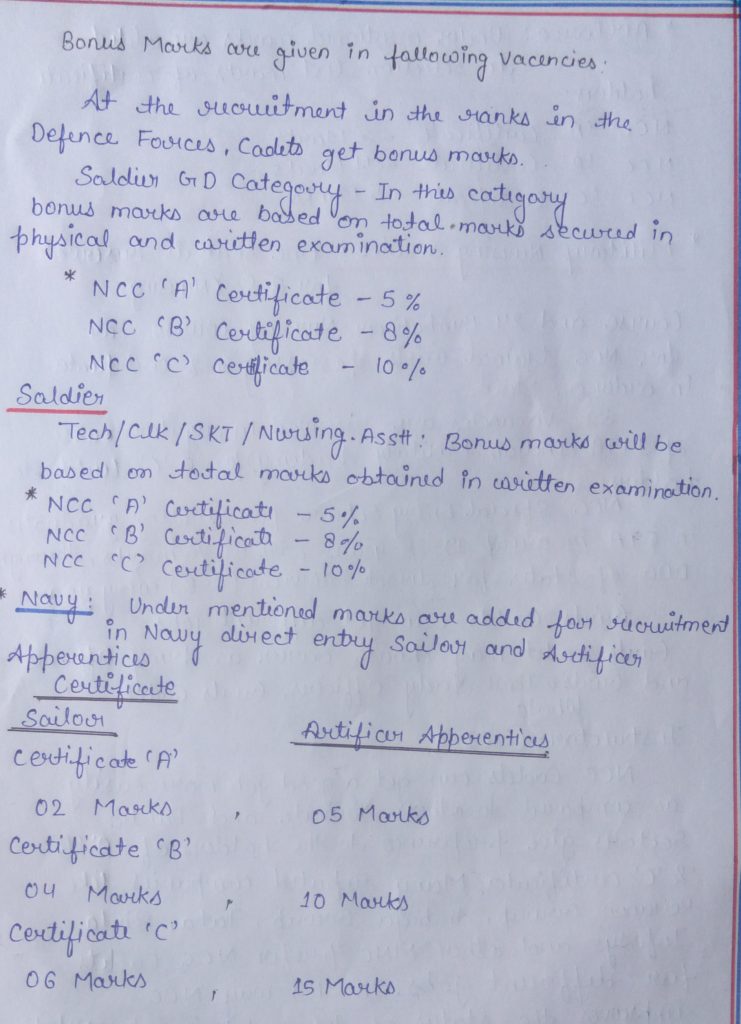 Bonus Marks are given in fallowing vacencies:
At the recruitment in the ranks in the
Defence Forces, Cadets get bonus marks.
Saldier GD Category - In this category
bonus marks are based on total marks secured in
physical and written examination.
* NCC 'A' Certificate - 5%
NCC 'B' Certificate - 8%
NCC 'C' Certificate - 10%
Saldier
Tech/Clk/SKT/Nursing.Asstt: Bonus marks will be
based on total marks obtained in written examination.
* NCC 'A' Certificate - 5%
NCC 'B' Certificate - 8%
NCC 'C' Certificate - 10%
* Navy: Under mentioned marks are added for recruitment
in Navy direct entry Sailor and Artificer
Apperentices
Certificate
Sailor Artificer Apperentices
Certificate 'A'
02 Marks , 05 Marks
Certificate 'B'
04 Marks , 10 Marks
Certificate 'C'
06 Marks , 15 Marks